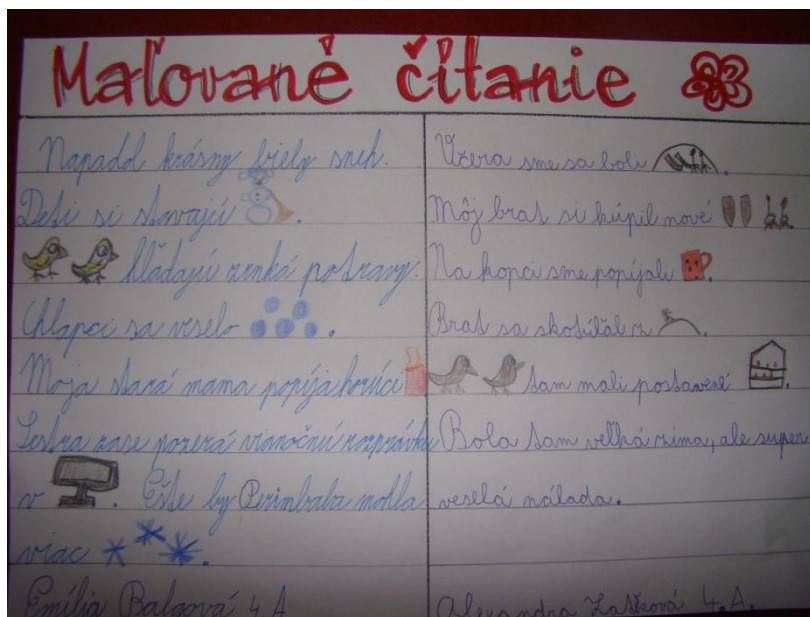 Maľované čítanie
Napadol krásny biely sneh.
Deti si stavajú .
hľadajú zrnká potravy.
Chlapci sa veselo .
Moja stará mama popíja horúci
Sestra zase pozerá vianočnú rozprávku
v . Ešte by Perinbaba mohla
viac .
Emília Balgová 4.A
Včera sme sa boli .
Môj brat si kúpil nové .
Na kopci sme popíjali .
Brat sa skotúľal z .
tam mali postavené .
Bola tam veľká zima, ale super
veselá nálada.
Alexandra 4.A.